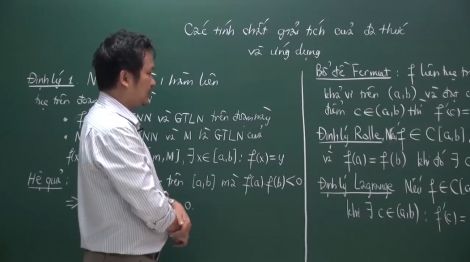 Các tính chất giải tích của đa thức
và ứng dụng
Định lý 1 N hàm liên
tục trên đoạn
• f NN và GTLN trên đoạn này
• NN và M là GTLN của
f( m, M], ∃x∈[a,b]: f(x)=y
Hệ quả: trên [a,b] mà f(a)f(b)<0
⇒ 0.
Bổ đề Fermat: f liên tục tr
khả vi trên (a,b) và đạt c
điểm c∈(a,b) thì f'(c) =
Định lý Rolle Nếu f∈C[a,b]
và f(a)=f(b) khi đó ∃c
Định lý Lagrange Nếu f∈C[a
khi ∃ c∈(a,b): f'(c) =